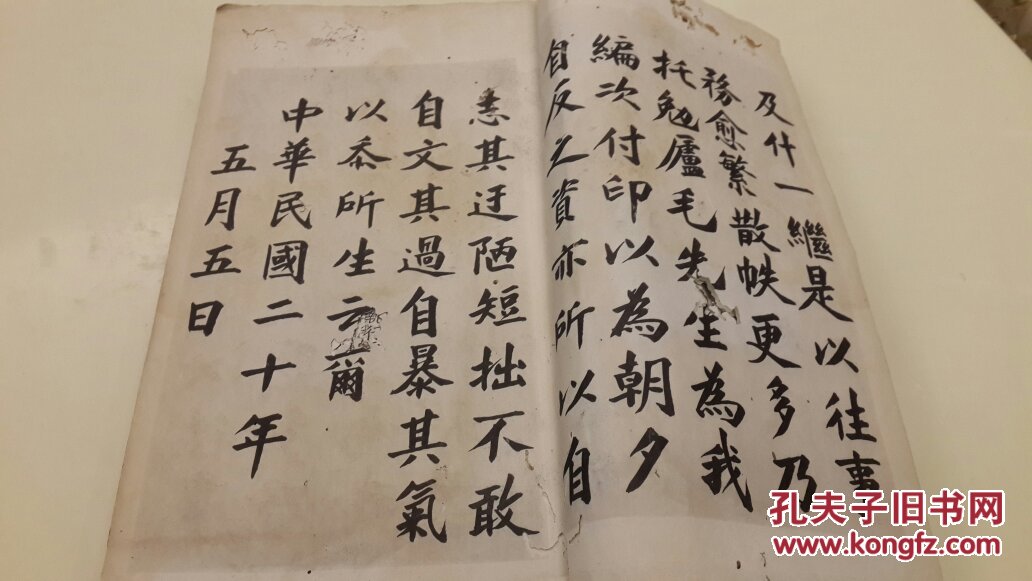 及什一繼是以往事
務愈繁散帙更多乃
托勉廬毛先生為我
編次付印以為朝夕
自反之資亦所以自
其迂陋短拙不敢
自文其過自暴其氣
以忝所生云爾
中華民國二十年
五月五日
孔夫子旧书网
www.kongfz.com